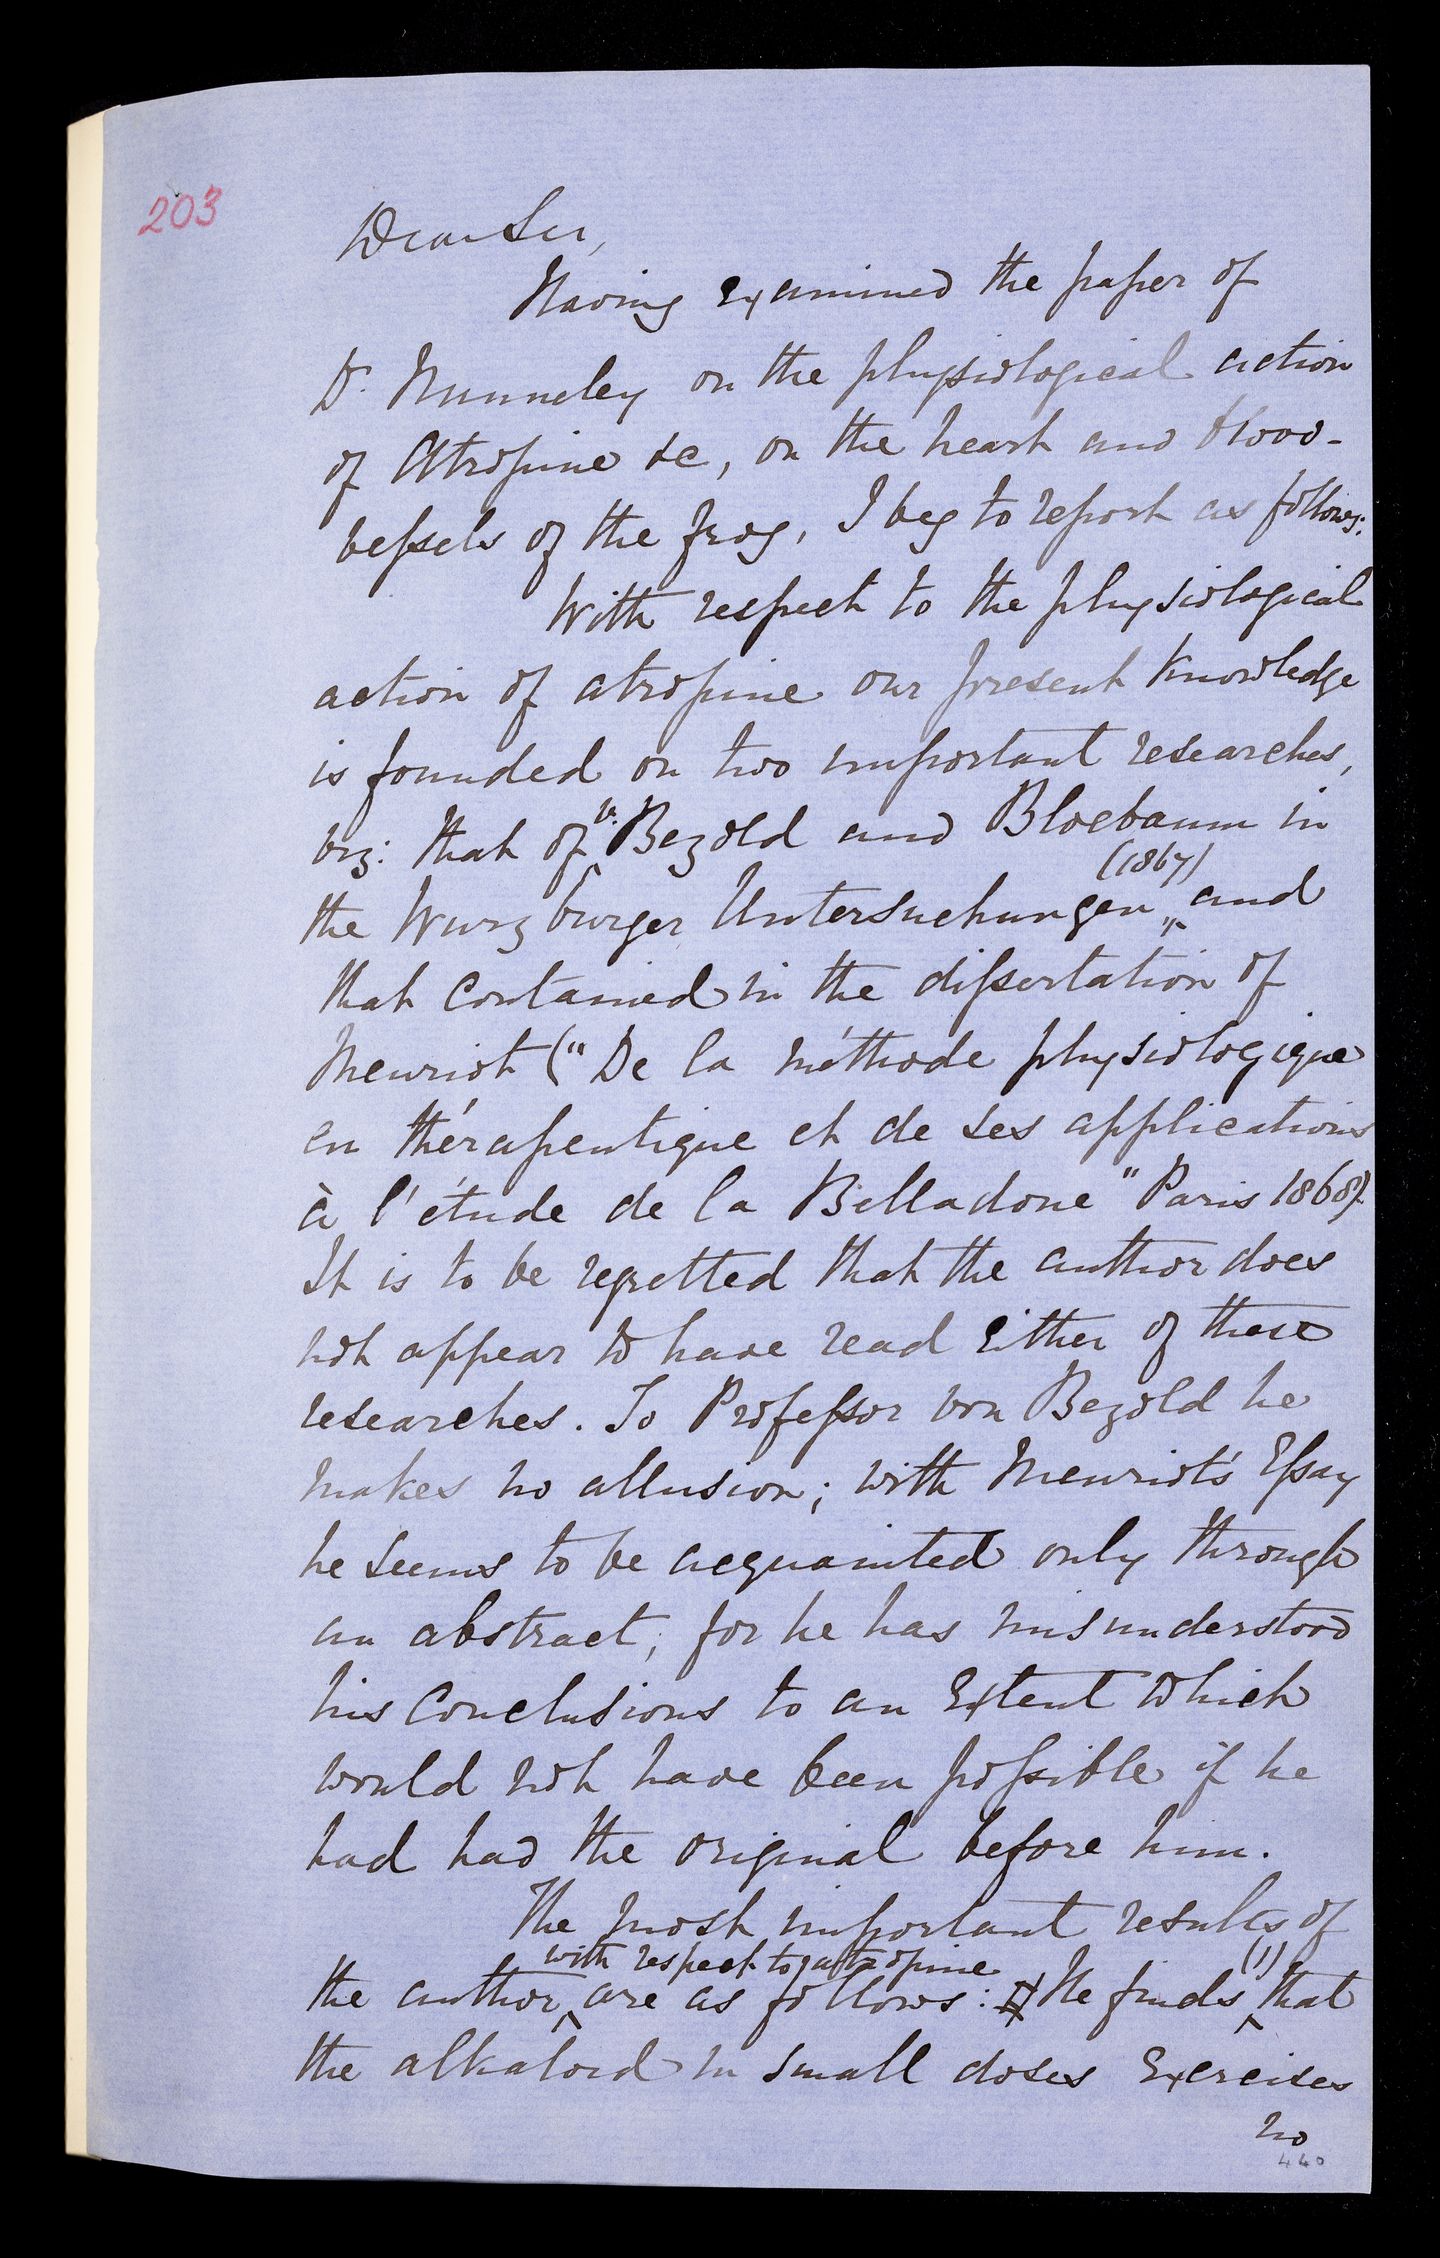 203
Dear Sir,
Having examined the paper of
Dr. Nunneley on the physiological action
of Atropine &c, on the heart and blood-
vessels of the frog, I beg to report as follows:
With respect to the physiological
action of atropine our present knowledge
is founded on two important researches,
viz: that of v. Bezold and Bloebaum in
the Wurzburger Untersuchungen (1867) and
that contained in the dissertation of
Meuriot ("De la méthode physiologique
en thérapeutique et de ses applications
à l'étude de la Belladone" Paris 1868).
It is to be regretted that the author does
not appear to have read either of these
researches. To Professor von Bezold he
makes no allusion; with Meuriot's Essay
he seems to be acquainted only through
an abstract, for he has misunderstood
his conclusions to an extent which
would not have been possible if he
had had the original before him.
The most important results of
the author with respect to atropine are as follows: He finds (1) that
the alkaloid in small doses exercises
no
440